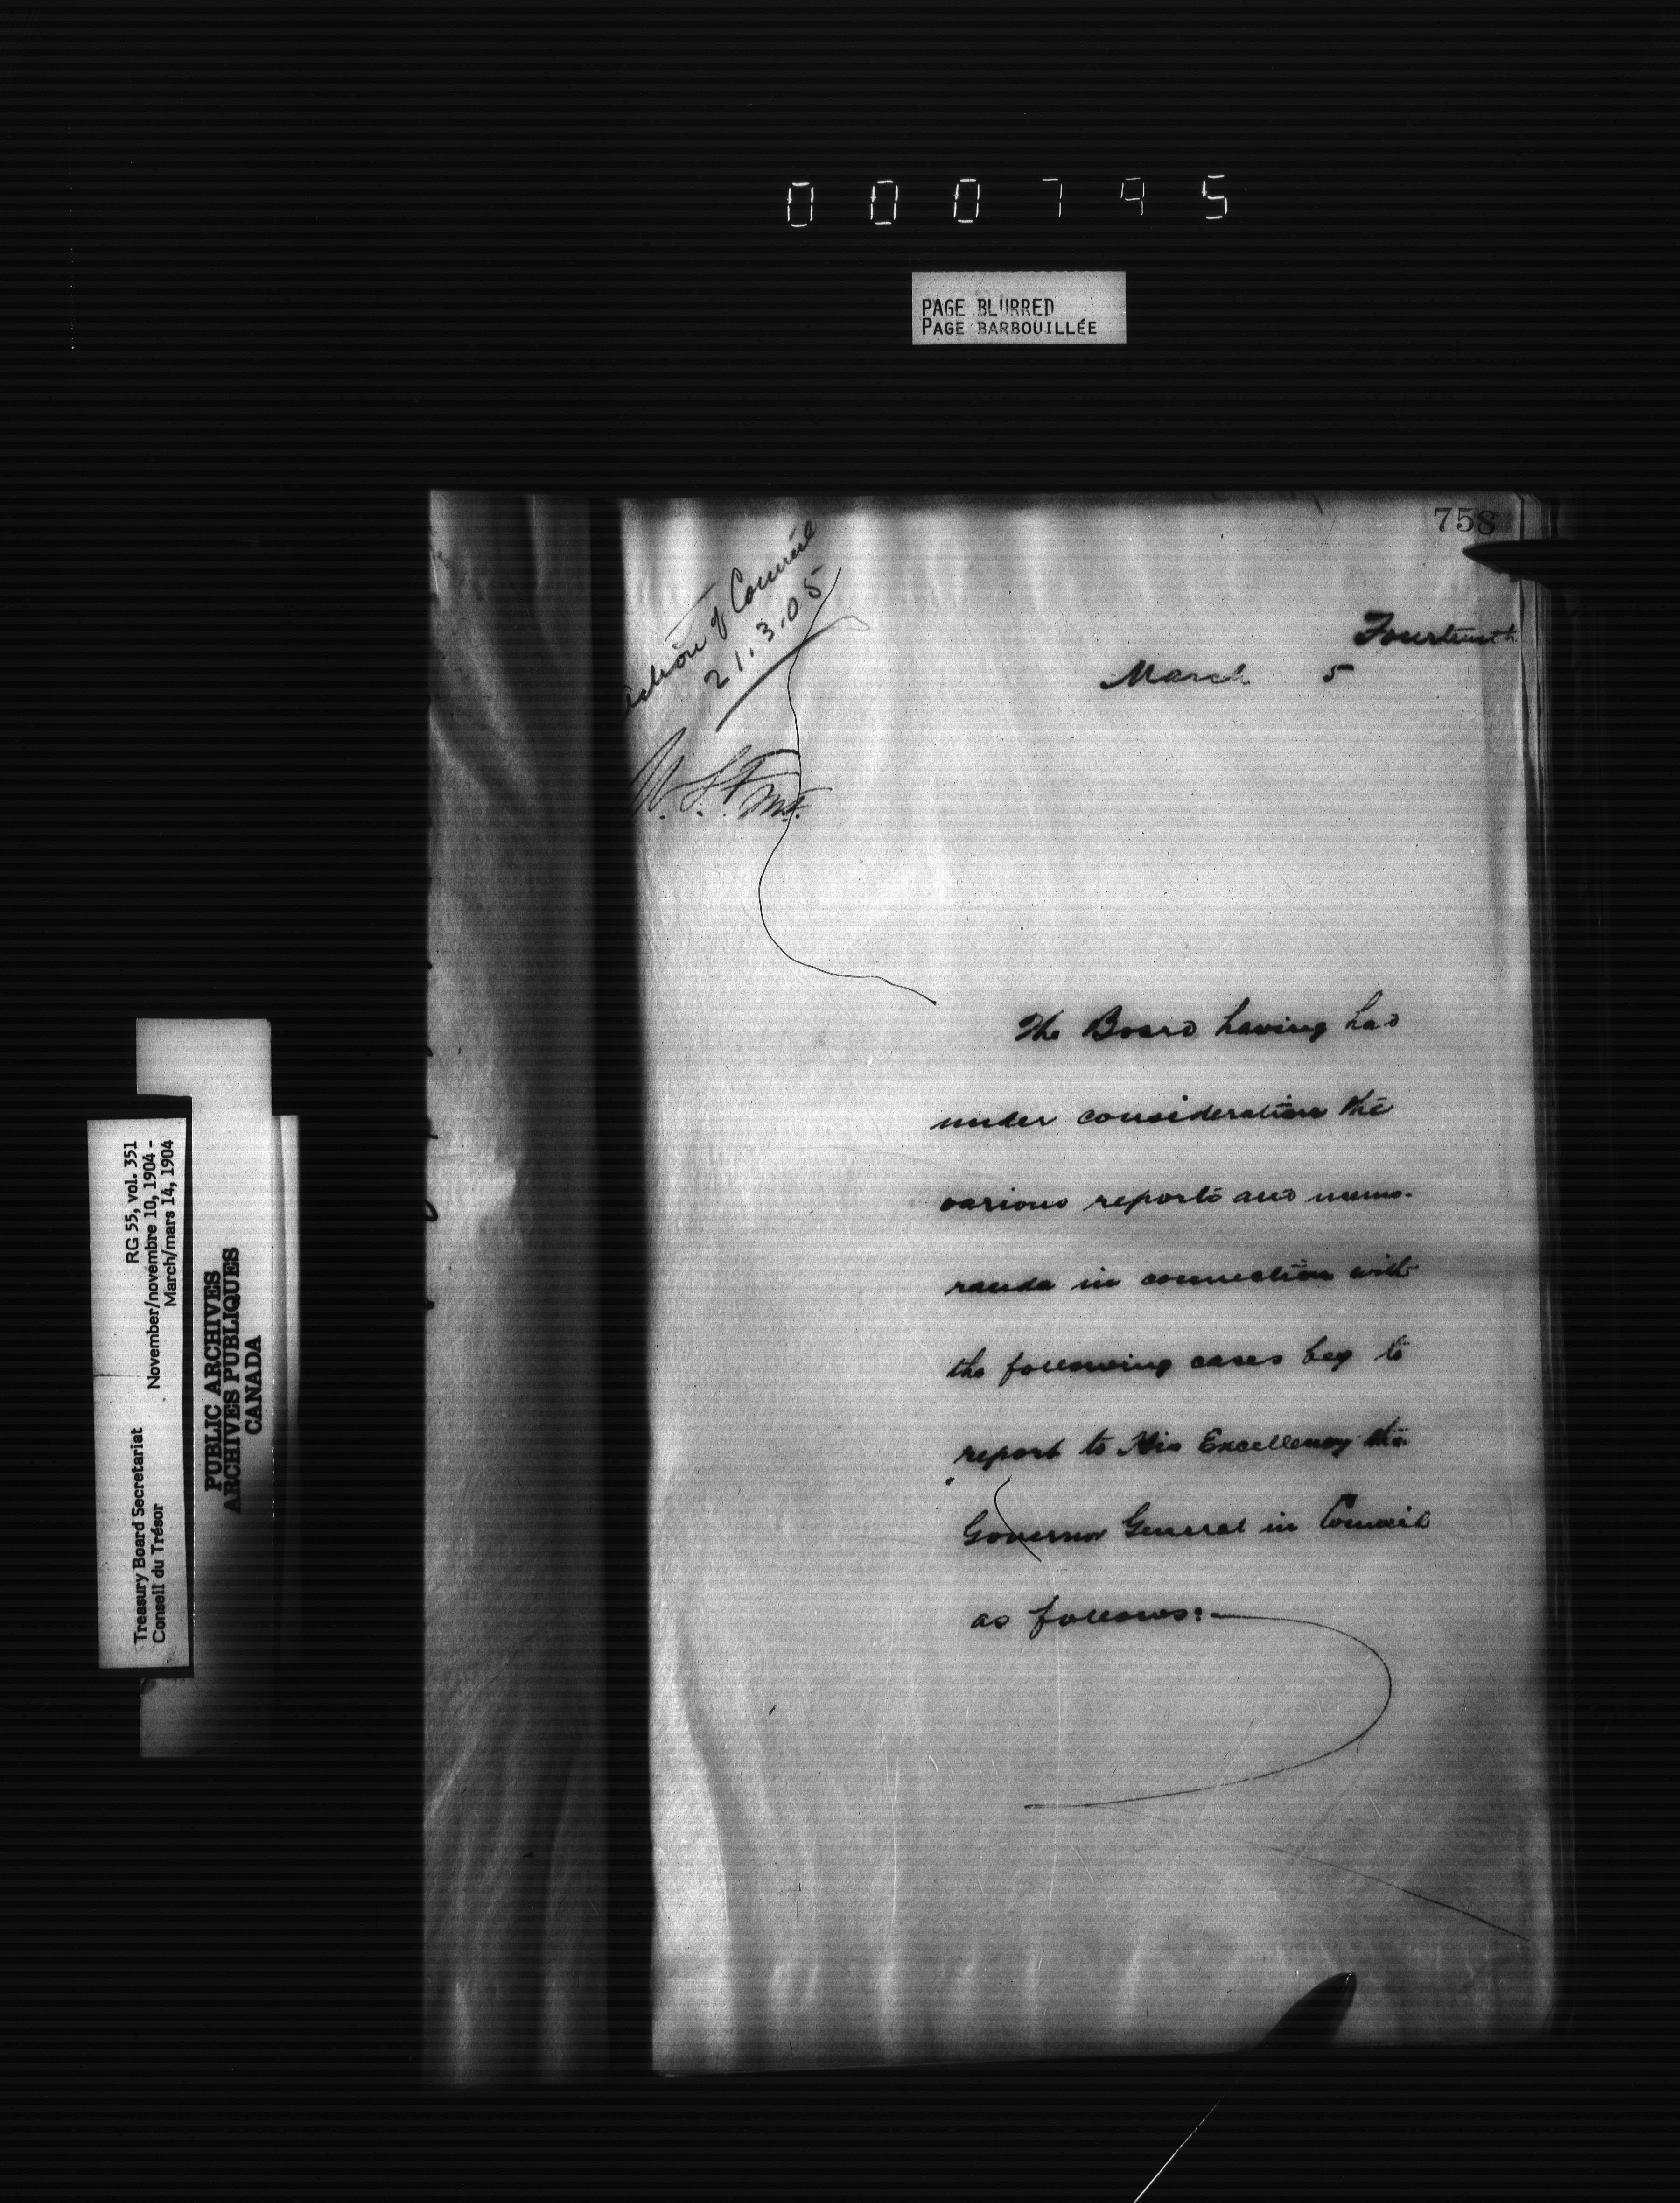 000795
PAGE BLURRED
PAGE BARBOUILLÉE
758
Action of Council
21.3.05
Fourteenth
March 5
The Board having had
under consideration the
various reports and memo-
randa in connection with
the following cases beg to
report to His Excellency the
Governor General in Council
as follows:-
Treasury Board Secretariat RG 55, vol. 351
Conseil du Trésor November/novembre 10, 1904 -
March/mars 14, 1904
PUBLIC ARCHIVES
ARCHIVES PUBLIQUES
CANADA